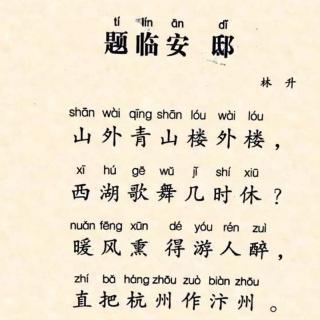 tí lín ān dǐ
题临安 邸
林 升
shān wài qīng shān lóu wài lóu
山外青山楼外楼，
xī hú gē wǔ jǐ shí xiū
西湖歌舞几时休？
nuǎn fēng xūn dé yóu rén zuì
暖风熏 得游人醉，
zhí bǎ háng zhōu zuò biàn zhōu
直把杭州作汴州。